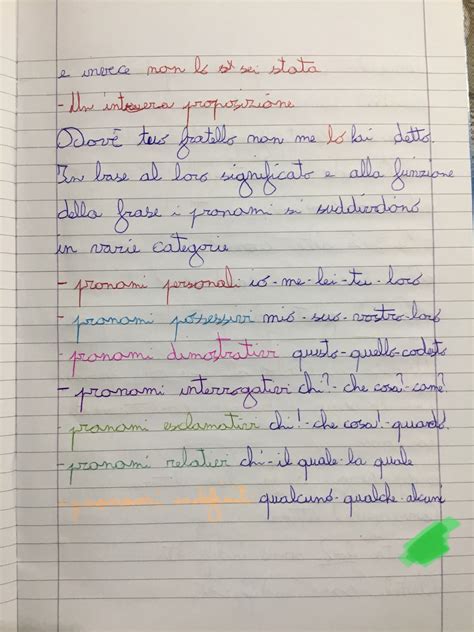 e invece non lo sei stata
- Un intera proposizione
Dov'è tuo fratello non me lo hai detto.
In base al loro significato e alla funzione
della frase i pronami si suddividono
in varie categorie
- pronami personali io-me-lei-tu-loro
- pronami possessivi mio-suo-vostro-loro
- pronami dimostrativi questo-quello-codesto
- pronami interrogativi chi?-che cosa?-come?
- pronami esclamativi chi!-che cosa!-quanto!
- pronami relativi chi-il quale-la quale
- pronami indefiniti qualcuno-qualche-alcuni